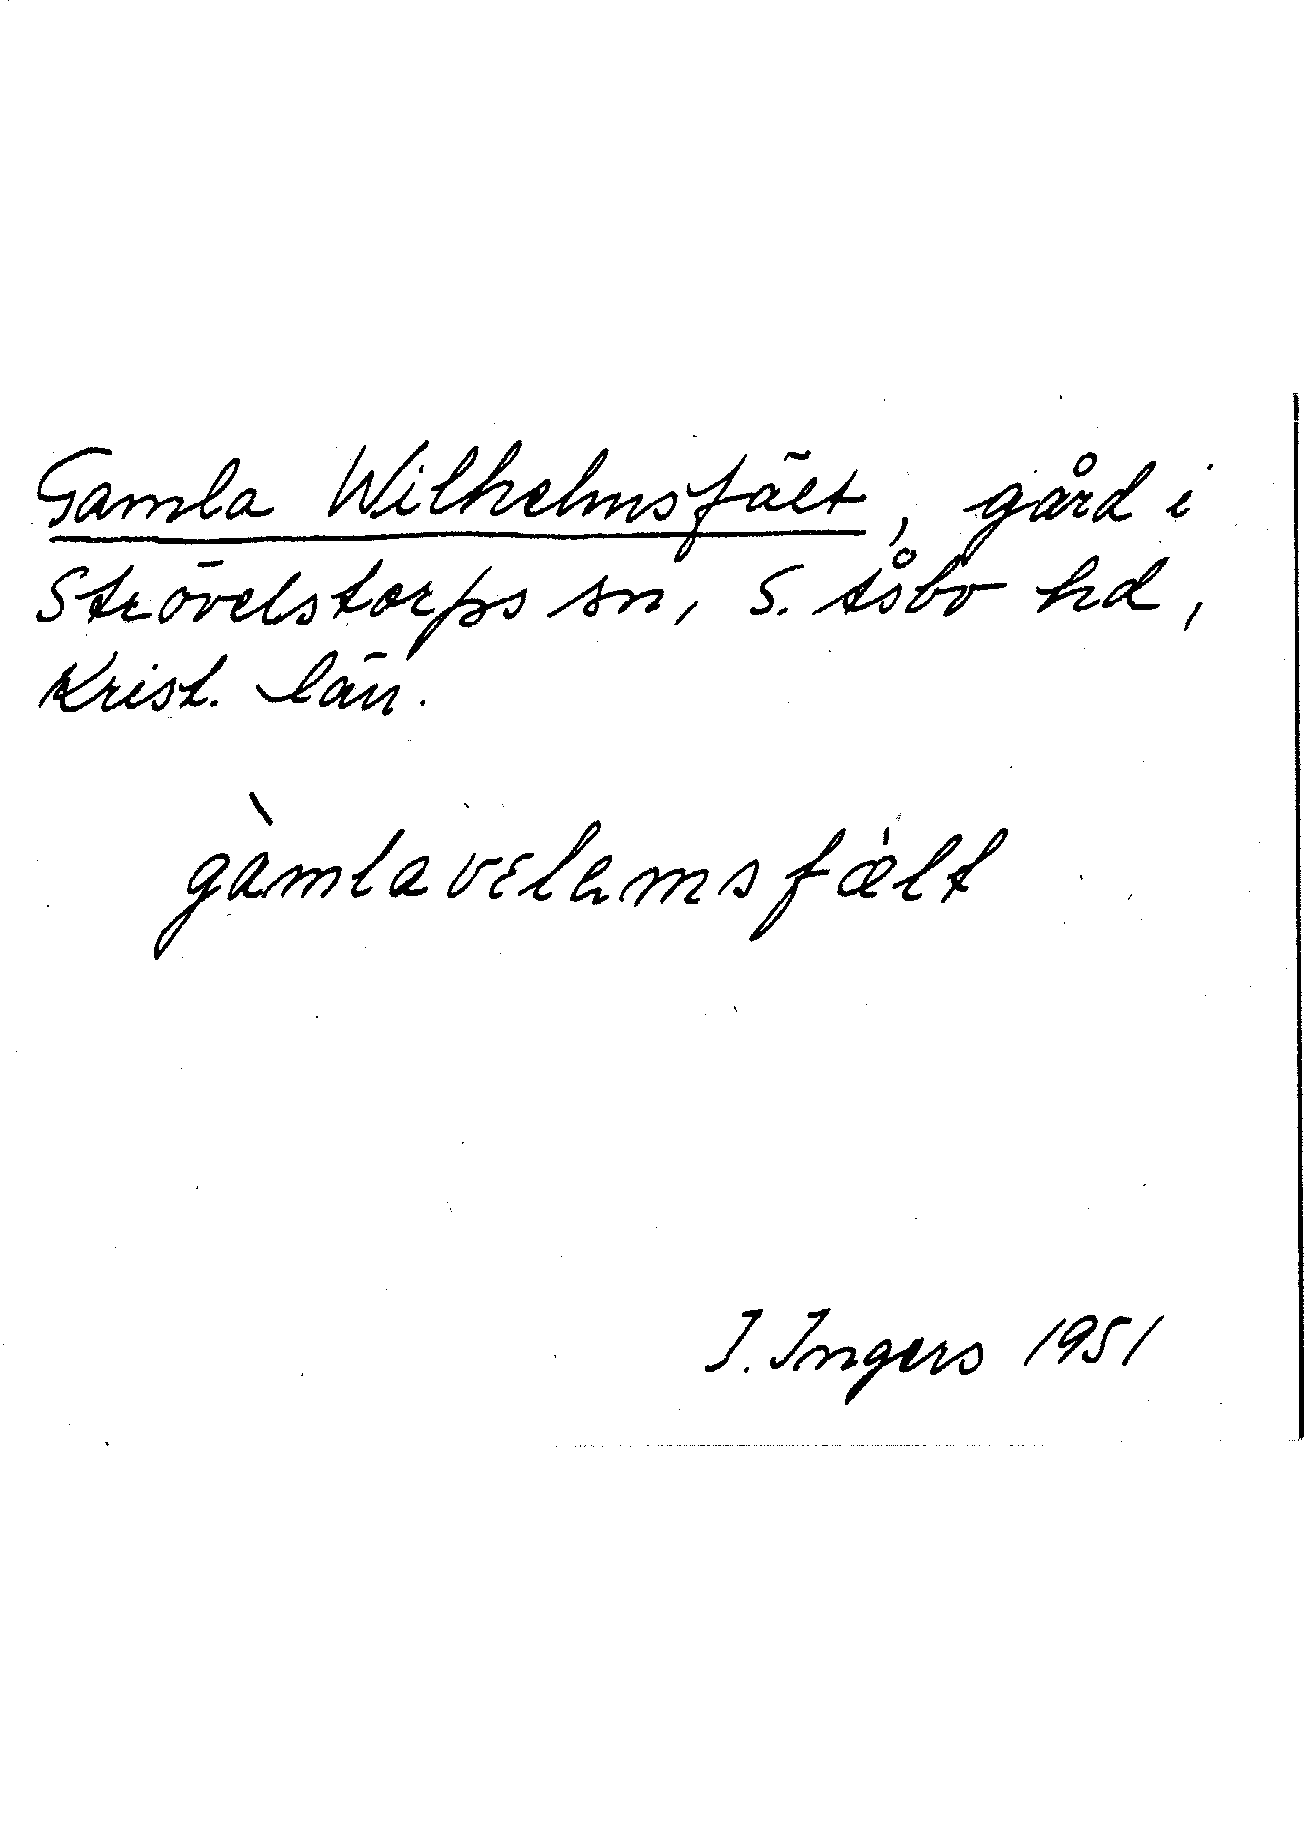 Gamla Wilhelmsfält, gård i
Strövelstorps sn, S. Åsbo hd,
Krist. län.
gàmlavɛlamsfælt
I. Ingers 1951